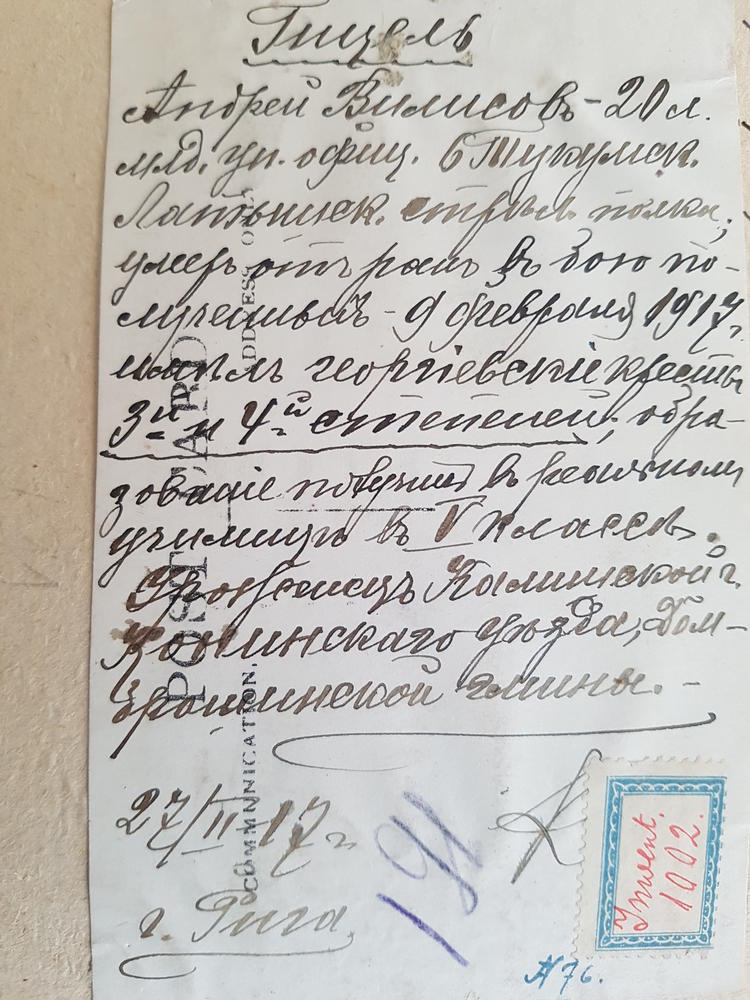 Гицель
Андрей Вилисовъ - 20 л.
млд. ун. офиц. 6 Тукумск.
Латышск. стрѣл. полка,
умеръ отъ ранъ въ бою по-
лученный - 9 февраля 1917 г.
имѣлъ георгіевскіе кресты
3й и 4й степеней; обра-
зованіе получилъ въ реальном
училищѣ въ V классѣ.
Уроженецъ Калишской г.
Конинскаго уѣзда, Дом-
брошинской гмины. -
27/II 17 г.
г. Рига
191
POST CARD
ADDRESS
COMMUNICATION.
Invent.
1002.
N 76.